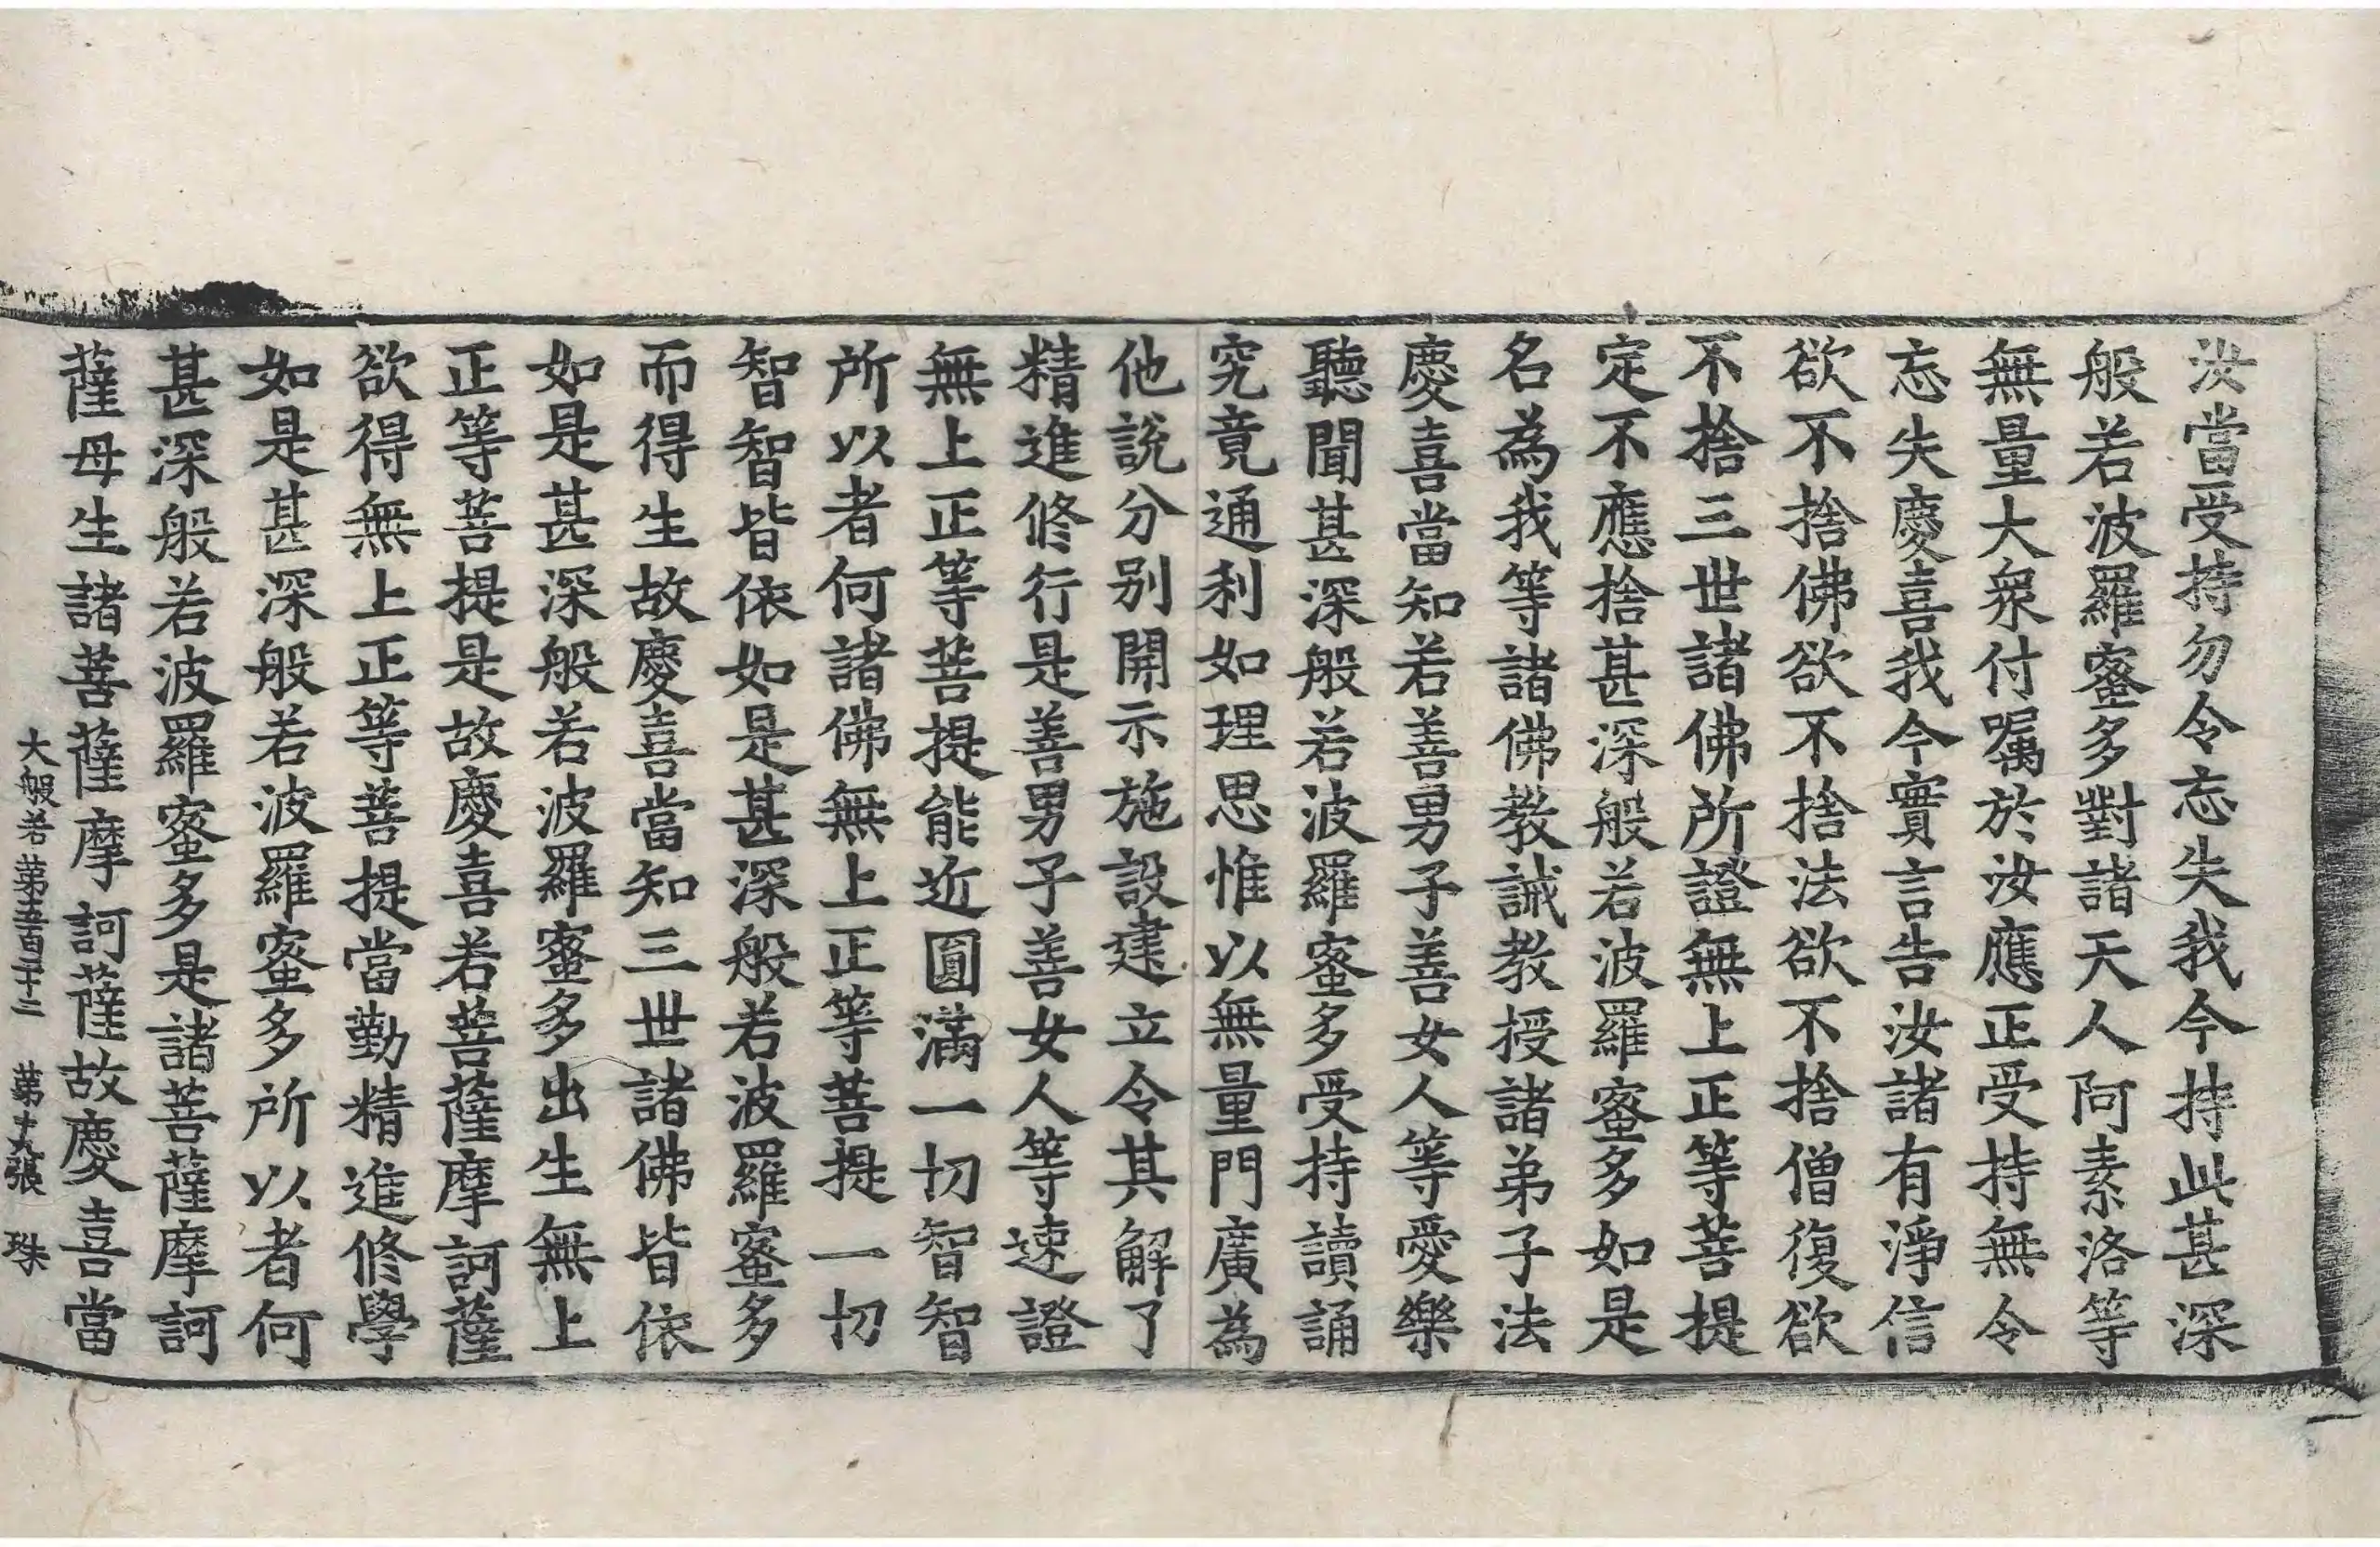 汝當受持勿令忘失我今持此甚深
般若波羅蜜多對諸天人阿素洛等
無量大衆付囑於汝應正受持無令
忘失慶喜我今實言告汝諸有淨信
欲不捨佛欲不捨法欲不捨僧復欲
不捨三世諸佛所證無上正等菩提
定不應捨甚深般若波羅蜜多如是
名為我等諸佛教誡教授諸弟子法
慶喜當知若善男子善女人等愛樂
聽聞甚深般若波羅蜜多受持讀誦
究竟通利如理思惟以無量門廣為
他說分別開示施設建立令其解了
精進修行是善男子善女人等速證
無上正等菩提能近圓滿一切智智
所以者何諸佛無上正等菩提一切
智智皆依如是甚深般若波羅蜜多
而得生故慶喜當知三世諸佛皆依
如是甚深般若波羅蜜多出生無上
正等菩提是故慶喜若菩薩摩訶薩
欲得無上正等菩提當勤精進修學
如是甚深般若波羅蜜多所以者何
甚深般若波羅蜜多是諸菩薩摩訶
薩母生諸菩薩摩訶薩故慶喜當
大般若第五百十二 第張 珠